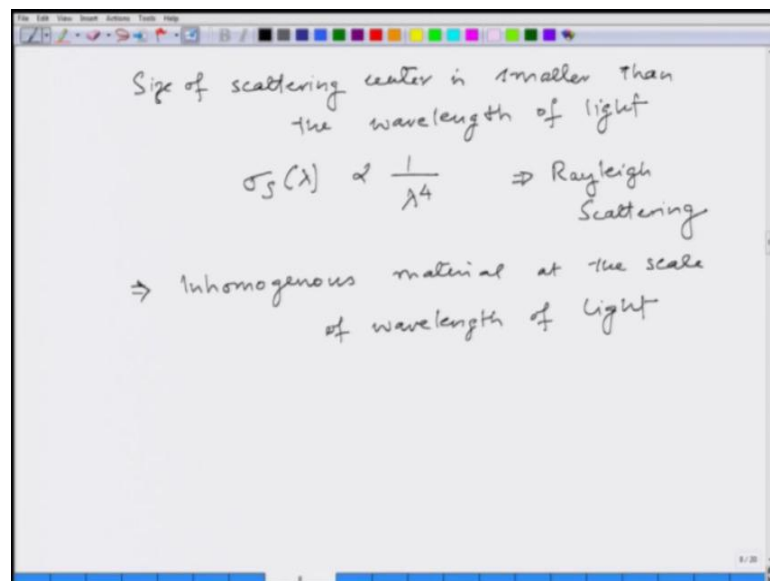 File Edit View Insert Actions Tools Help
Size of scattering center is smaller than
the wavelength of light
σs(λ) ∝ 1/λ⁴ ⇒ Rayleigh
Scattering
⇒ Inhomogenous material at the scale
of wavelength of light
8/20